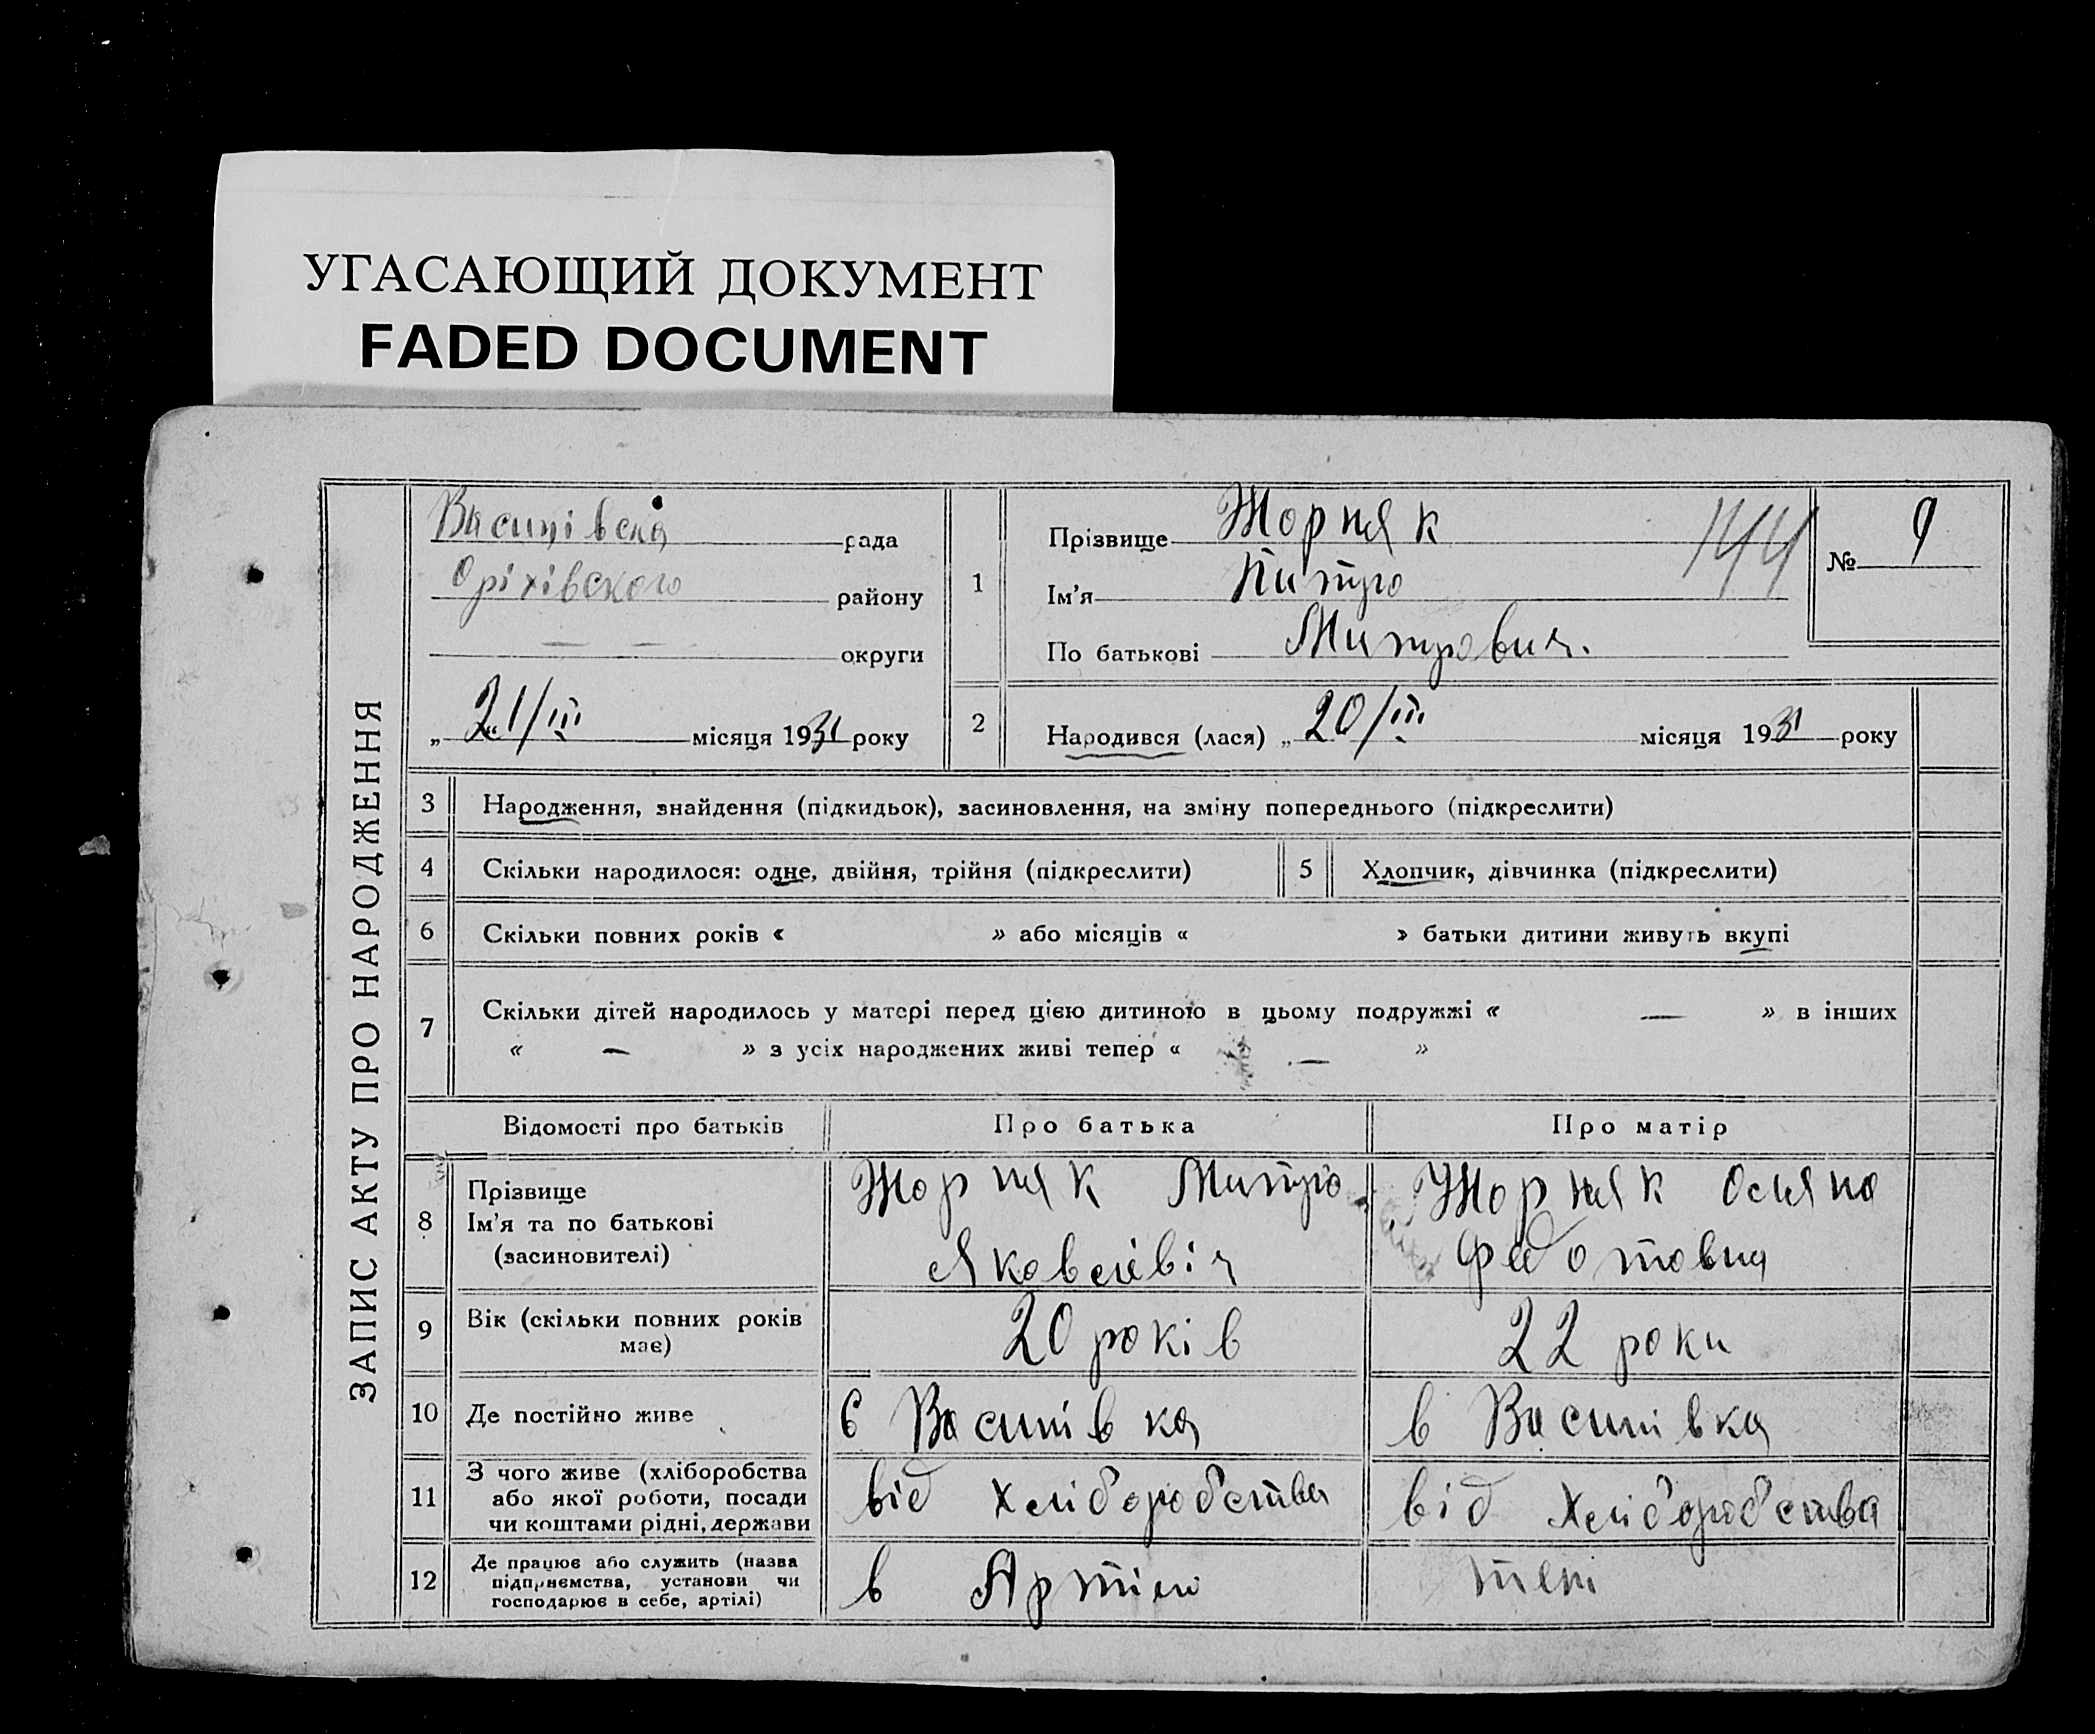 УГАСАЮЩИЙ ДОКУМЕНТ
FADED DOCUMENT
ЗАПИС АКТУ ПРО НАРОДЖЕННЯ
Василівска рада
Оріхівского району
— — округи
„ 21/III місяця 1931 року
1
Прізвище Жорняк
Ім'я Питро
По батькові Митрович.
144
№ 9
2 Народився (лася) „ 20/III місяця 1931 року
3 Народження, знайдення (підкидьок), засиновлення, на зміну попереднього (підкреслити)
4 Скільки народилося: одне, двійня, трійня (підкреслити) 5 Хлопчик, дівчинка (підкреслити)
6 Скільки повних років « » або місяців « » батьки дитини живуть вкупі
7 Скільки дітей народилось у матері перед цією дитиною в цьому подружжі « — » в інших
« — » з усіх народжених живі тепер « — »
Відомості про батьків Про батька Про матір
8 Прізвище
Ім'я та по батькові
(засиновителі)
Жорняк Митро
Яковлівіч
Жорняк Осяна
Федотовна
9 Вік (скільки повних років
має)
20 років
22 роки
10 Де постійно живе в Василівка в Василівка
11 З чого живе (хліборобства
або якої роботи, посади
чи коштами рідні, держави
від хліборобства від хліборобства
12 Де працює або служить (назва
підприємства, установи чи
господарює в себе, артілі)
в Артілі